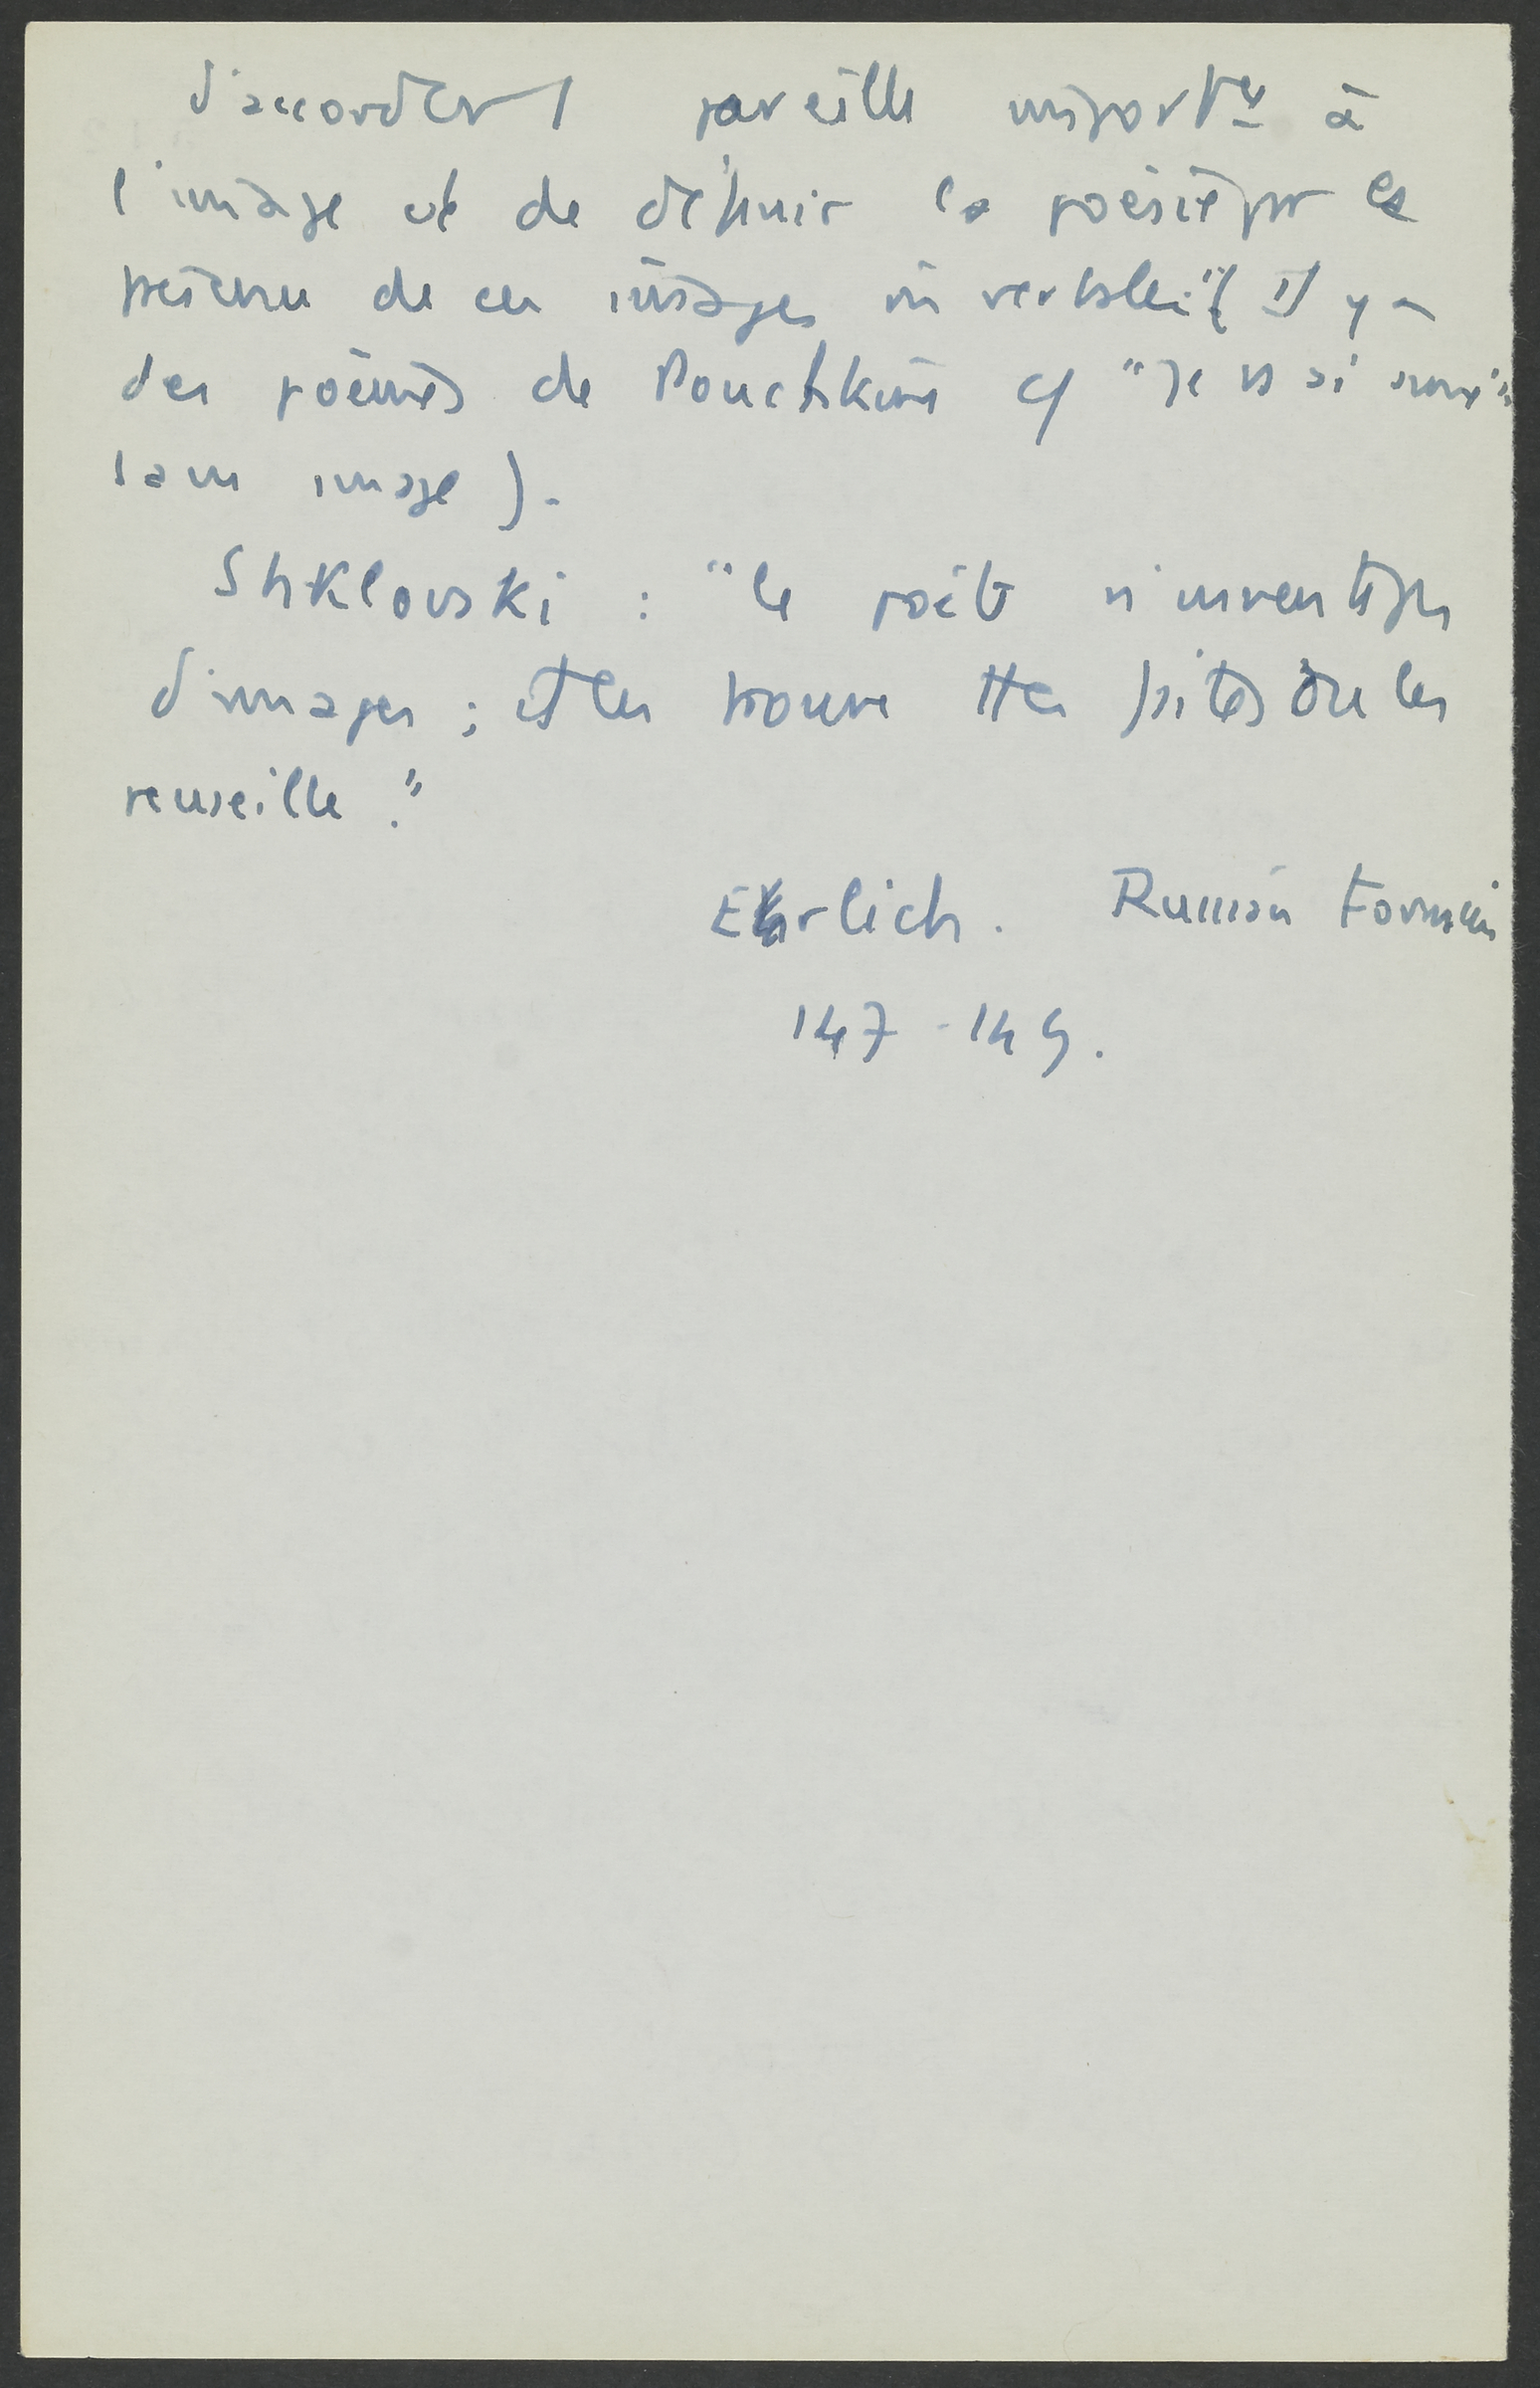 d'accorder pareille import^ce à
l'image et de définir la poésie par la
présence de ces images in verbales" ( Il y a
des poèmes de Pouchkine cf "Je vs ai aimé"
sans image ).
Shklovski : "le poète n'invente pas
d'images ; il les trouve ttes faites où les
recueille."
Ehrlich. Russian Formalism
147-149.